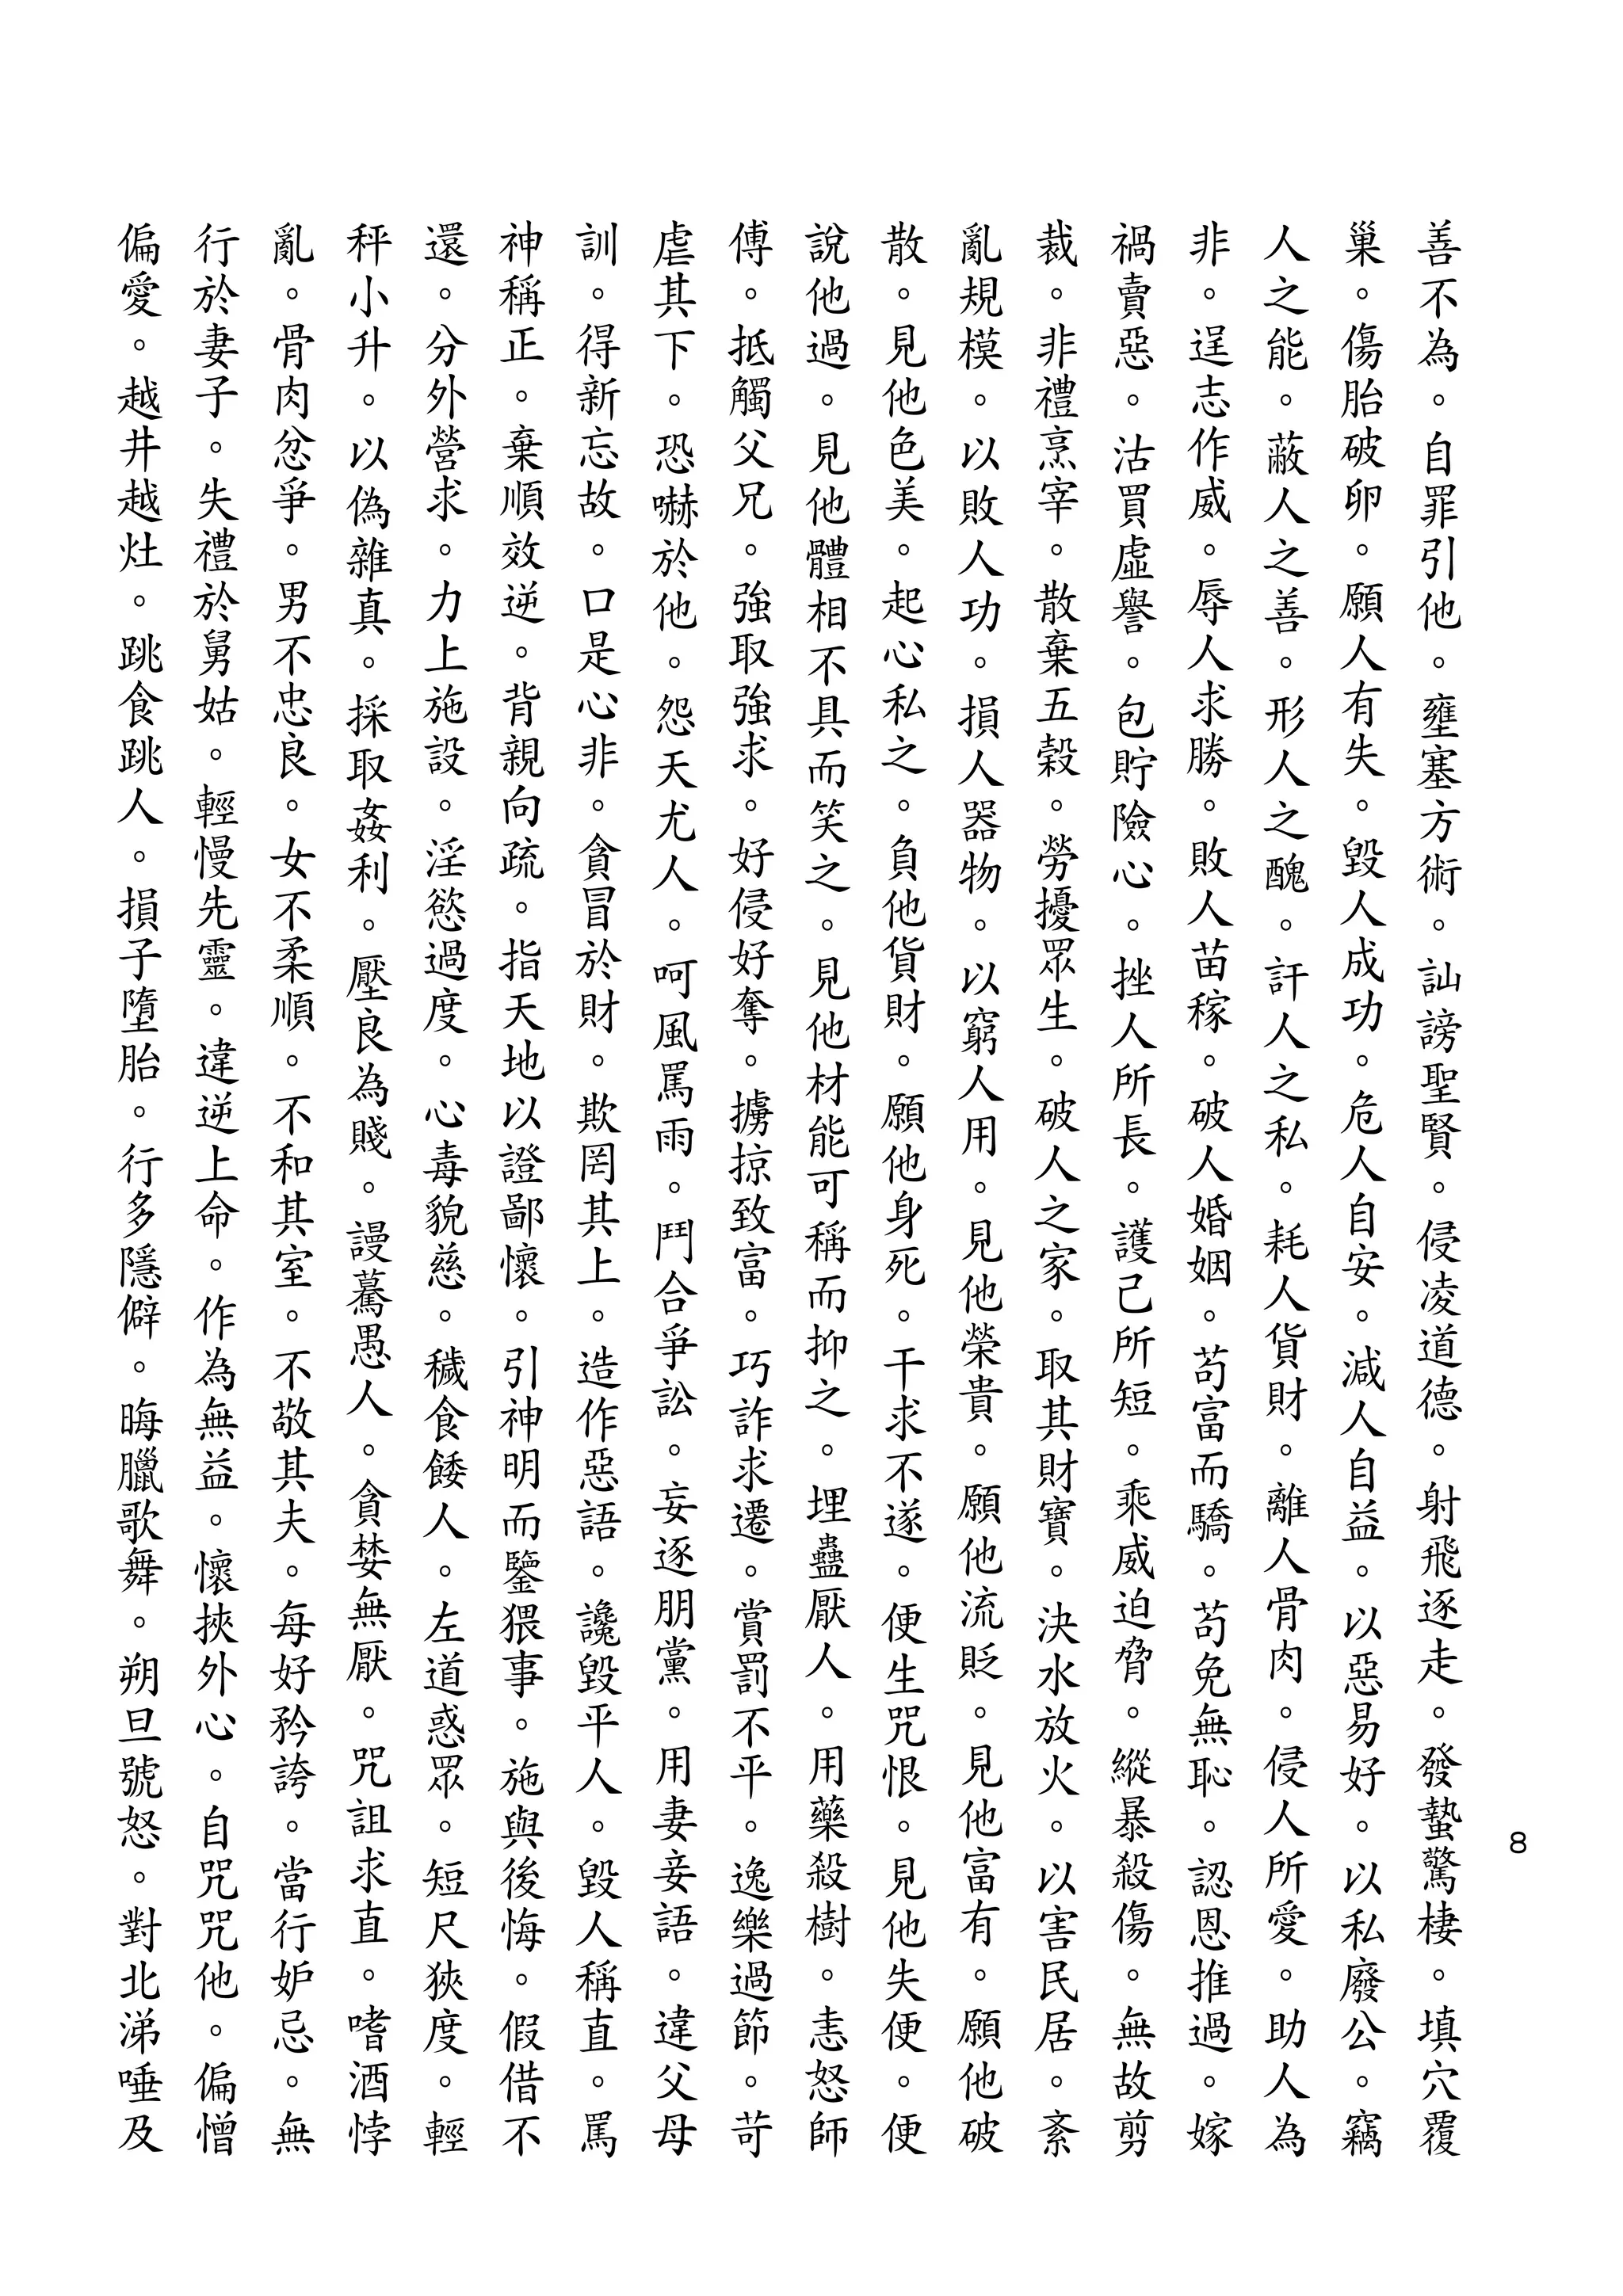 善不為。自罪引他。壅塞方術。訕謗聖賢。侵凌道德。射飛逐走。發蟄驚棲。填穴覆
巢。傷胎破卵。願人有失。毀人成功。危人自安。減人自益。以惡易好。以私廢公。竊
人之能。蔽人之善。形人之醜。訐人之私。耗人貨財。離人骨肉。侵人所愛。助人為
非。逞志作威。辱人求勝。敗人苗稼。破人婚姻。苟富而驕。苟免無恥。認恩推過。嫁
禍賣惡。沽買虛譽。包貯險心。挫人所長。護己所短。乘威迫脅。縱暴殺傷。無故剪
裁。非禮烹宰。散棄五穀。勞擾眾生。破人之家。取其財寶。決水放火。以害民居。紊
亂規模。以敗人功。損人器物。以窮人用。見他榮貴。願他流貶。見他富有。願他破
散。見他色美。起心私之。負他貨財。願他身死。干求不遂。便生咒恨。見他失便。便
說他過。見他體相不具而笑之。見他材能可稱而抑之。埋蠱厭人。用藥殺樹。恚怒師
傅。抵觸父兄。強取強求。好侵好奪。擄掠致富。巧詐求遷。賞罰不平。逸樂過節。苛
虐其下。恐嚇於他。怨天尤人。呵風罵雨。鬥合爭訟。妄逐朋黨。用妻妾語。違父母
訓。得新忘故。口是心非。貪冒於財。欺罔其上。造作惡語。讒毀平人。毀人稱直。罵
神稱正。棄順效逆。背親向疏。指天地以證鄙懷。引神明而鑒猥事。施與後悔。假借不
還。分外營求。力上施設。淫慾過度。心毒貌慈。穢食餧人。左道惑眾。短尺狹度。輕
秤小升。以偽雜真。採取姦利。壓良為賤。謾驀愚人。貪婪無厭。咒詛求直。嗜酒悖
亂。骨肉忿爭。男不忠良。女不柔順。不和其室。不敬其夫。每好矜誇。當行妒忌。無
行於妻子。失禮於舅姑。輕慢先靈。違逆上命。作為無益。懷挾外心。自咒咒他。偏憎
偏愛。越井越灶。跳食跳人。損子墮胎。行多隱僻。晦臘歌舞。朔旦號怒。對北涕唾及
8